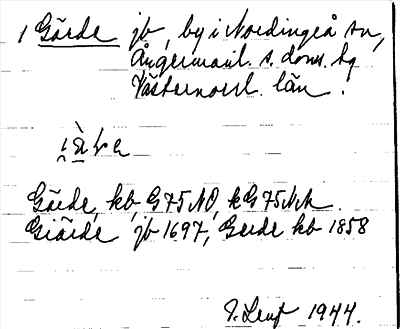 1 Gärde jb, by i Nordingrå sn,
Ångermanl. s. doms. hg
Västernorrl. län.
Gärde, kb, G75NO, kG75NA
Giärde jb 1697, Gerde kb 1858
1944.